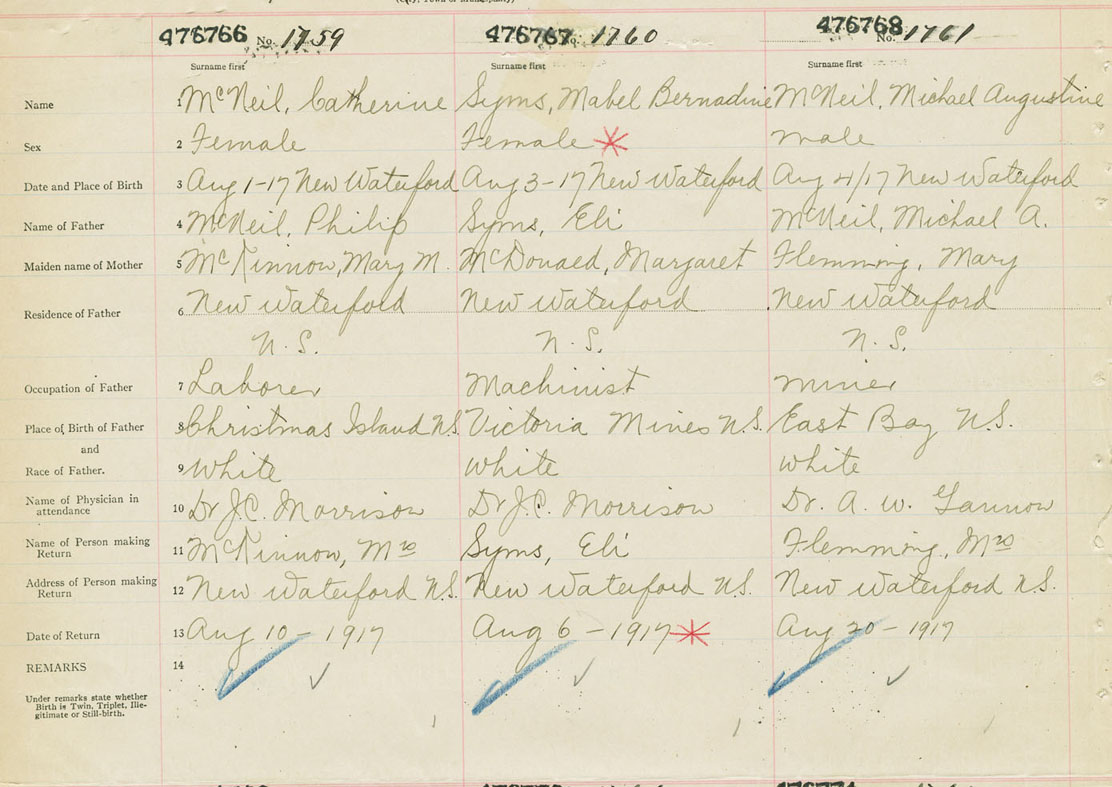 (City, Town or Municipality)
476766 No. 1759 476767 No. 1760 476768 No. 1761
Surname first Surname first Surname first
Name 1 McNeil, Catherine Syms, Mabel Bernadine McNeil, Michael Augustine
Sex 2 Female Female male
Date and Place of Birth 3 Aug 1-17 New Waterford Aug 3-17 New Waterford Aug 4/17 New Waterford
Name of Father 4 McNeil, Philip Syms, Eli McNeil, Michael A.
Maiden name of Mother 5 McKinnow, Mary M. McDonaed, Margaret Flemming, Mary
Residence of Father 6 New Waterford New Waterford New Waterford
N.S. N.S. N.S.
Occupation of Father 7 Laborer Machinist miner
Place of Birth of Father 8 Christmas Island N.S. Victoria Mines N.S. East Bay N.S.
and
Race of Father. 9 white white white
Name of Physician in
attendance 10 Dr J.C. Morrison Dr J.C. Morrison Dr. A. W. Gannow
Name of Person making
Return 11 McKinnow, Mrs Syms, Eli Flemming, Mrs
Address of Person making
Return 12 New Waterford N.S. New Waterford N.S. New Waterford N.S.
Date of Return 13 Aug 10 - 1917 Aug 6 - 1917 Aug 20 - 1917
REMARKS 14
Under remarks state whether
Birth is Twin, Triplet, Ille-
gitimate or Still-birth.